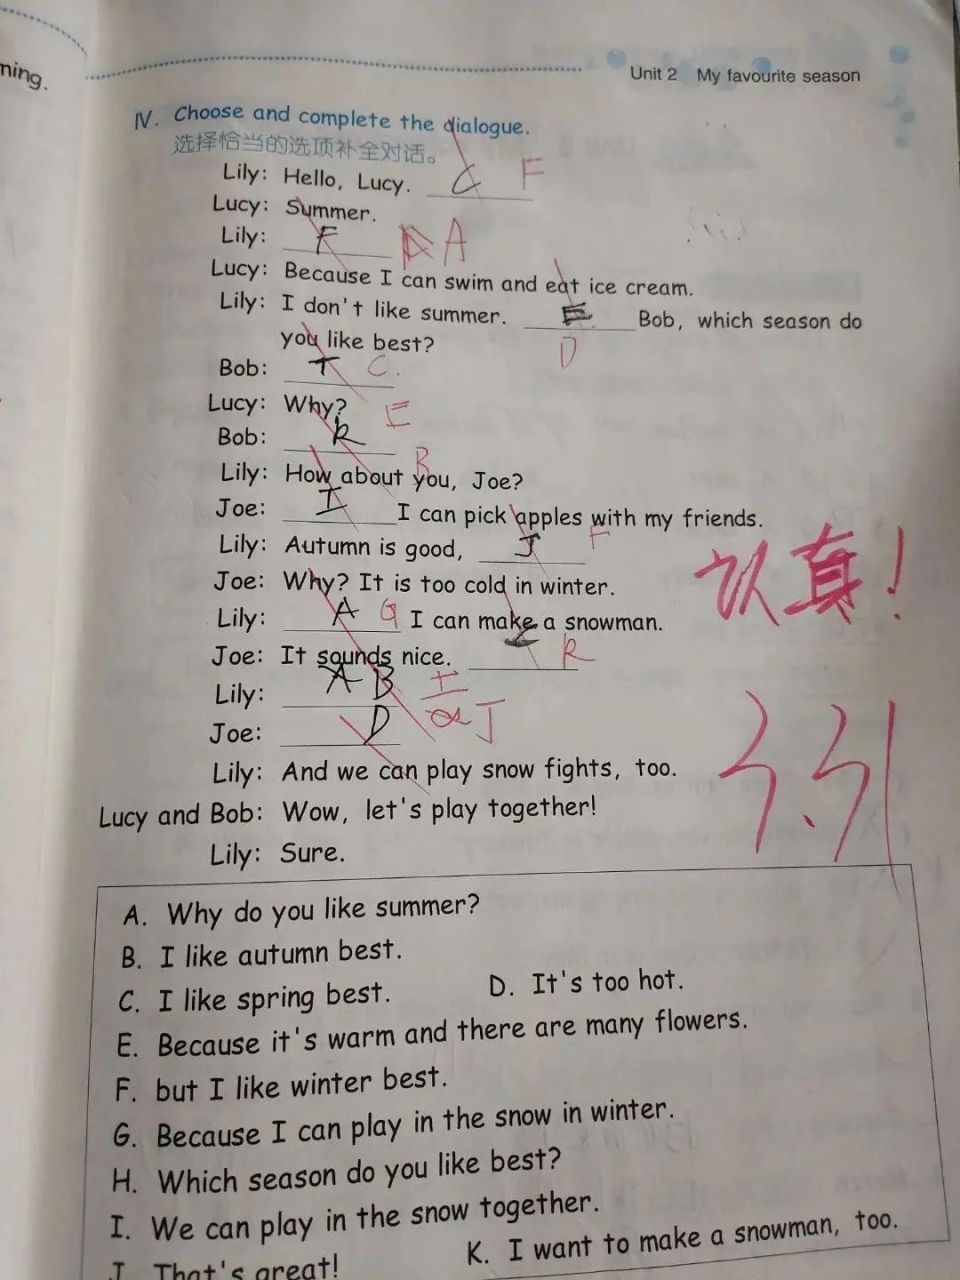 ning.
Unit 2 My favourite season
Ⅳ. Choose and complete the dialogue.
选择恰当的选项补全对话。
Lily: Hello, Lucy. C F
Lucy: Summer.
Lily: F A
Lucy: Because I can swim and eat ice cream.
Lily: I don't like summer. E Bob, which season do
D
you like best?
Bob: C.
Lucy: Why? E
Bob: K
B
Lily: How about you, Joe?
Joe: I I can pick apples with my friends.
Lily: Autumn is good, J F
Joe: Why? It is too cold in winter.
Lily: A G I can make a snowman.
Joe: It sounds nice. K
Lily: A B I
Joe: D J
Lily: And we can play snow fights, too.
Lucy and Bob: Wow, let's play together!
Lily: Sure.
认真!
3.31
A. Why do you like summer?
B. I like autumn best.
C. I like spring best. D. It's too hot.
E. Because it's warm and there are many flowers.
F. but I like winter best.
G. Because I can play in the snow in winter.
H. Which season do you like best?
I. We can play in the snow together.
J. That's great! K. I want to make a snowman, too.